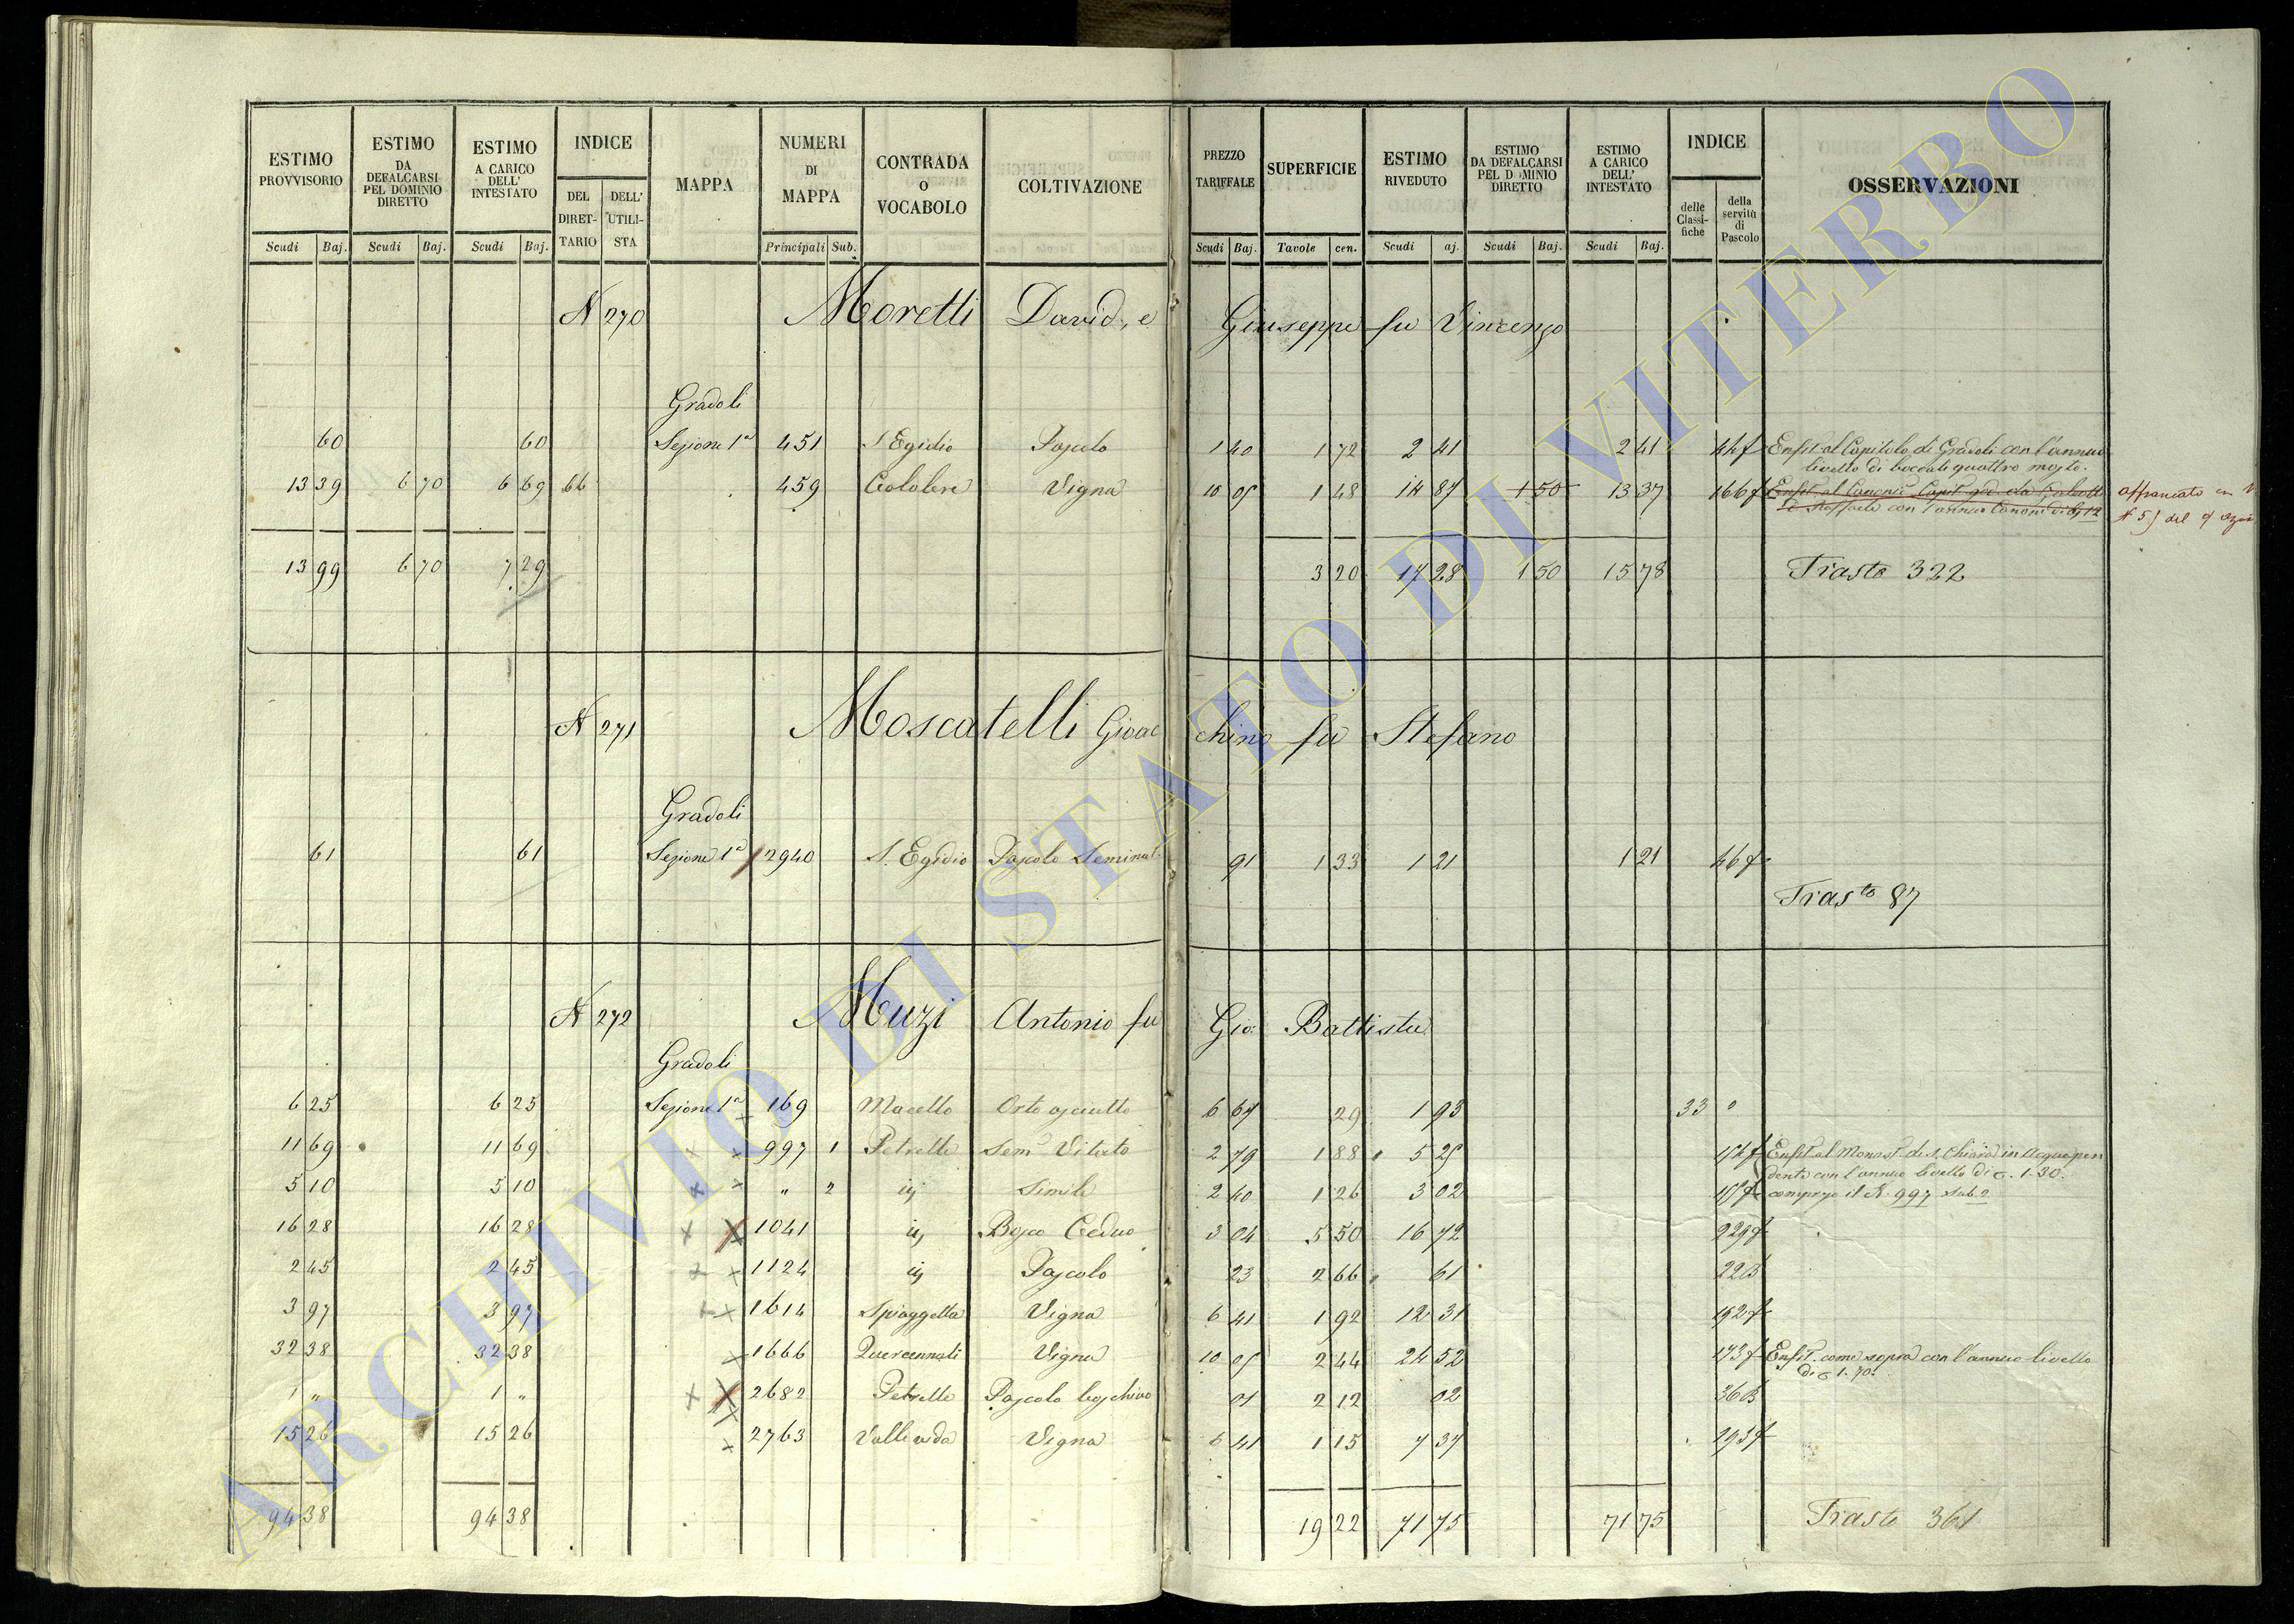 ESTIMO PROVVISORIO | ESTIMO DA DEFALCARSI PEL DOMINIO DIRETTO | ESTIMO A CARICO DELL' INTESTATO | INDICE DEL DIRETTARIO | DELL' UTILISTA | MAPPA | NUMERI DI MAPPA | CONTRADA O VOCABOLO | COLTIVAZIONE | PREZZO TARIFFALE | SUPERFICIE | ESTIMO RIVEDUTO | ESTIMO DA DEFALCARSI PEL DOMINIO DIRETTO | ESTIMO A CARICO DELL' INTESTATO | INDICE delle Classifiche | della servitù di Pascolo | OSSERVAZIONI
Scudi | Baj. | Scudi | Baj. | Scudi | Baj. | Principali | Sub. | Scudi | Baj. | Tavole | cen. | Scudi | aj. | Scudi | Baj. | Scudi | Baj.
N 270 Moretti David, e Giuseppe fu Vincenzo
Gradoli
60 | 60 | Sezione 1a | 451 | S. Egidio | Pascolo | 1 40 | 1 72 | 2 41 | 2 41 | 44 f | Enfit. al Capitolo di Gradoli con l'annuo
livello di boccali quattro mosto.
13 39 | 6 70 | 6 69 | 66 | 459 | Vigna | 10 05 | 1 48 | 14 87 | 1 50 | 13 37 | 166 f | Enfit. al
con l'annuo Canone di
affrancato
13 99 | 6 70 | 7 29 | 3 20 | 17 28 | 1 50 | 15 78 | Trasto 322
N 271 Moscatelli Gioacchino fu Stefano
Gradoli
61 | 61 | Sezione 1a | 2940 | S. Egidio | Pascolo Seminat. | 91 | 1 33 | 1 21 | 1 21 | 46 f
Trasto 87
N 272 Muzi Antonio fu Gio: Battista
Gradoli
6 25 | 6 25 | Sezione 1a | 169 | Macello | Orto asciutto | 6 67 | 29 | 1 93 | 33
11 69 | 11 69 | 997 | 1 | Petrelle | Sem. Vitato | 2 79 | 1 88 | 5 25 | Enfit. al Monast. di S. Chiara in Acquapen
dente con l'annuo livello di 1.30.
5 10 | 5 10 | " | 2 | ivj | Simile | 2 40 | 1 26 | 3 02 | compreso il N. 997 sub. 2
16 28 | 16 28 | 1041 | ivj | Bosco Ceduo | 3 04 | 5 50 | 16 72 | 229 f
2 45 | 2 45 | 1124 | ivj | Pascolo | 23 | 2 66 | 61 | 22 B
3 97 | 3 97 | 1614 | Spiaggetta | Vigna | 6 41 | 1 92 | 12 31 | 192 f
32 38 | 32 38 | 1666 | Vigna | 10 05 | 2 44 | 24 52 | 173 f | Enfit. come sopra con l'annuo livello
di 1.70.
1 " | 1 " | 2682 | Petrelle | Pascolo boschivo | 01 | 2 12 | 02 | 36 B
15 26 | 15 26 | 2763 | Vigna | 6 41 | 1 15 | 7 37 | 193 f
94 38 | 94 38 | 19 22 | 71 75 | 71 75 | Trasto 361
ARCHIVIO DI STATO DI VITERBO